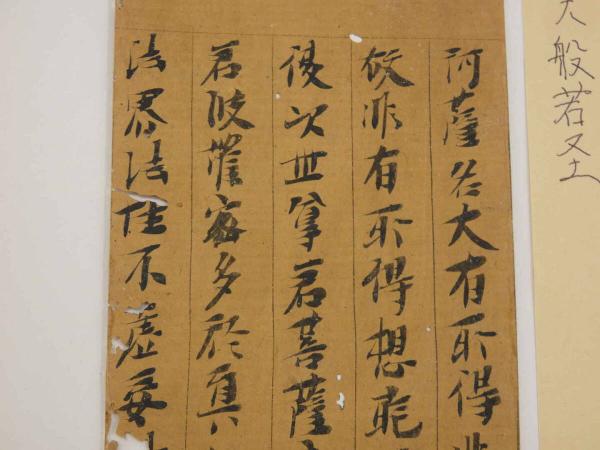 大般若圣
訶薩名大有所得非
故非有所得想能
復次世尊若菩薩
若波羅蜜多於真
法界法性不虛妄